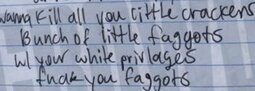 wanna kill all you little crackers
Bunch of little faggots
w/ your white privlages
fuck you faggots